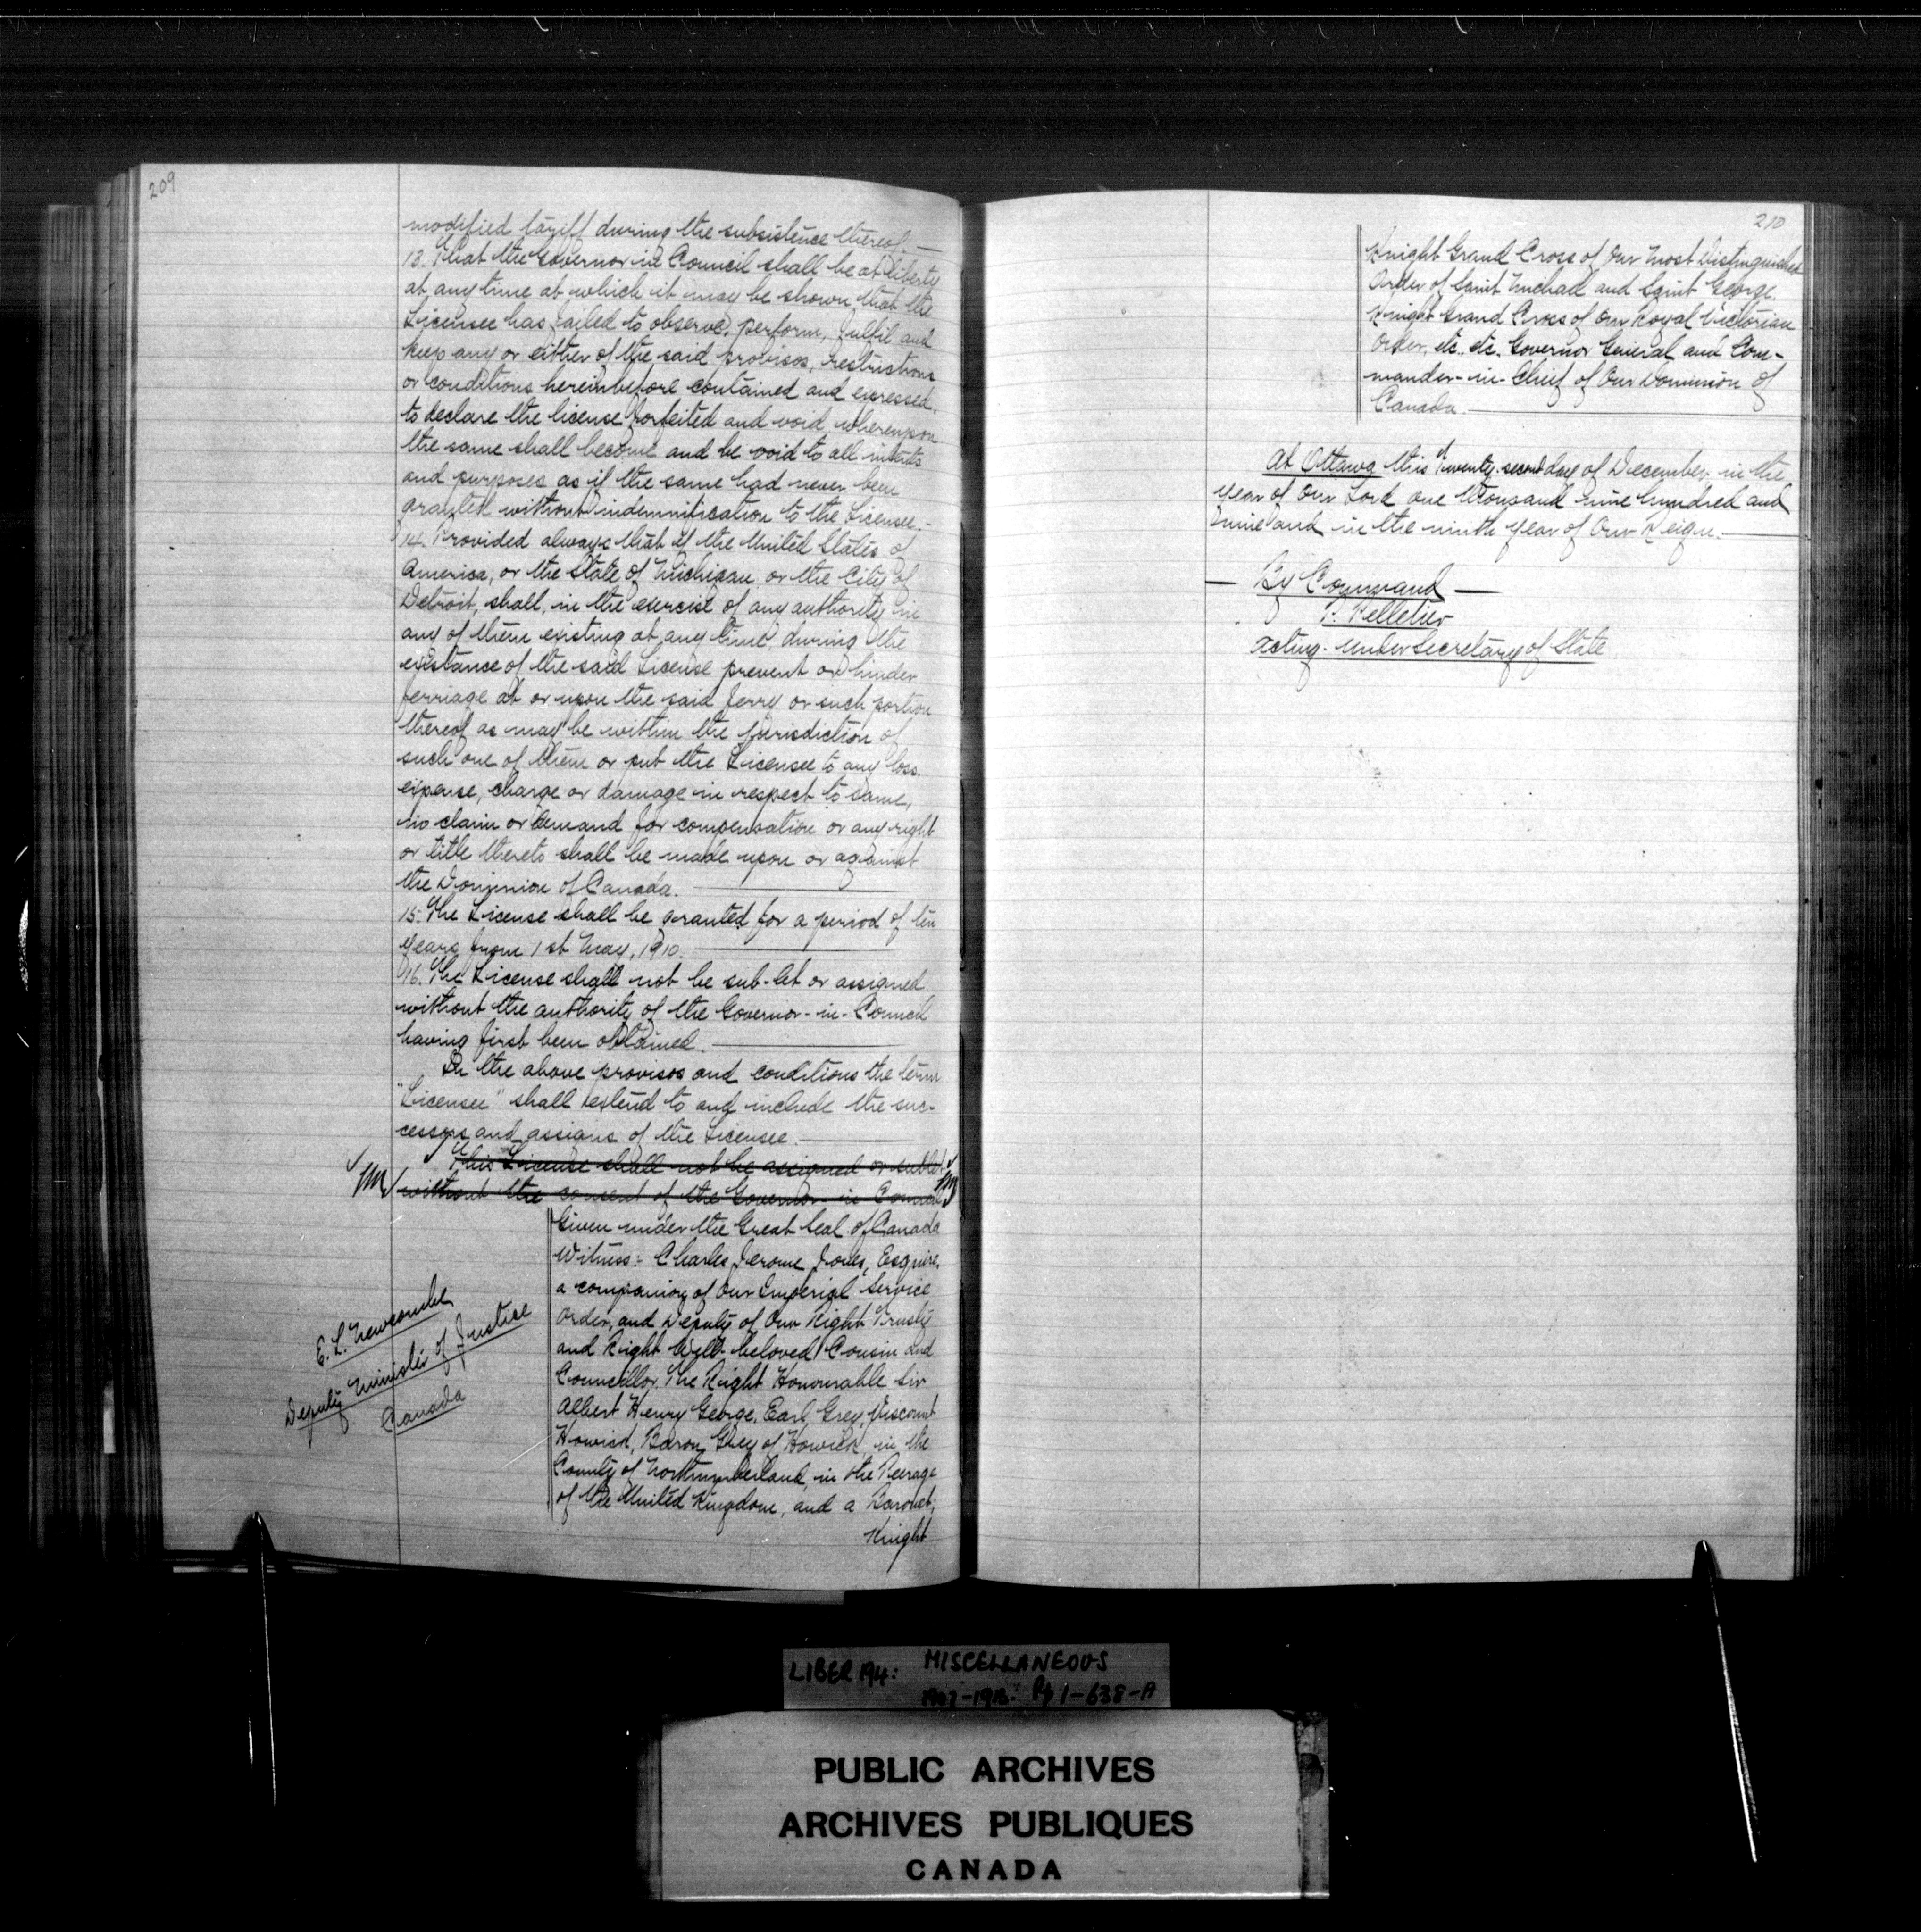 209
modified tariff during the subsistence thereof.
13. That the Governor in Council shall be at liberty
at any time at which it may be shown that the
Licensee has failed to observe, perform, fulfil and
keep any or either of the said provisos, restrictions
or conditions hereinbefore contained and expressed,
to declare the license forfeited and void, whereupon
the same shall become and be void to all intents
and purposes as if the same had never been
granted without indemnification to the Licensee.
14. Provided always that if the United States of
America, or the State of Michigan, or the City of
Detroit, shall, in the exercise of any authority in
any of them existing at any time, during the
existance of the said License prevent or hinder
ferriage at or upon the said ferry or such portion
thereof as may be within the jurisdiction of
such one of them or put the Licensee to any loss,
expense, charge or damage in respect to same,
no claim or demand for compensation or any right
or title thereto shall be made upon or against
the Dominion of Canada.
15. The License shall be granted for a period of ten
years from 1st May, 1910.
16. The License shall not be sub-let or assigned
without the authority of the Governor-in-Council
having first been obtained.
In the above provisos and conditions the term
"Licensee" shall extend to and include the suc-
cessors and assigns of the Licensee.
This License shall not be assigned or sublet
without the consent of the Governor in Council
Given under the Great Seal of Canada
Witness:- Charles Jerome Jones, Esquire,
a companion of Our Imperial Service
Order, and Deputy of Our Right Trusty
and Right Well-beloved Cousin and
Councillor, The Right Honourable Sir
Albert Henry George, Earl Grey, Viscount
Howick, Baron Grey of Howick, in the
County of Northumberland, in the Peerage
of the United Kingdom, and a Baronet;
Knight
E. L. Newcombe
Deputy Minister of Justice
Canada
210
Knight Grand Cross of Our Most Distinguished
Order of Saint Michael and Saint George.
Knight Grand Cross of Our Royal Victorian
Order, etc., etc. Governor General and Com-
mander-in-Chief of Our Dominion of
Canada.
At Ottawa this Twenty-second day of December, in the
year of Our Lord one thousand nine hundred and
nine and in the ninth year of Our Reign.
By Command
P. Pelletier
Acting-Under Secretary of State
LIBER 194: MISCELLANEOUS
1907-1913. Pp 1-638-A
PUBLIC ARCHIVES
ARCHIVES PUBLIQUES
CANADA